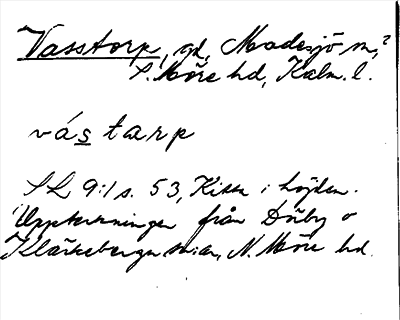 Vasstorp, gd, Madesjö sn,
S. Möre hd, Kalm. l.
vástarp
SL 9:1 s. 53, Kisa i höjden.
Uppteckningar från Dörby o
Kläckeberga snar, N. Möre hd.